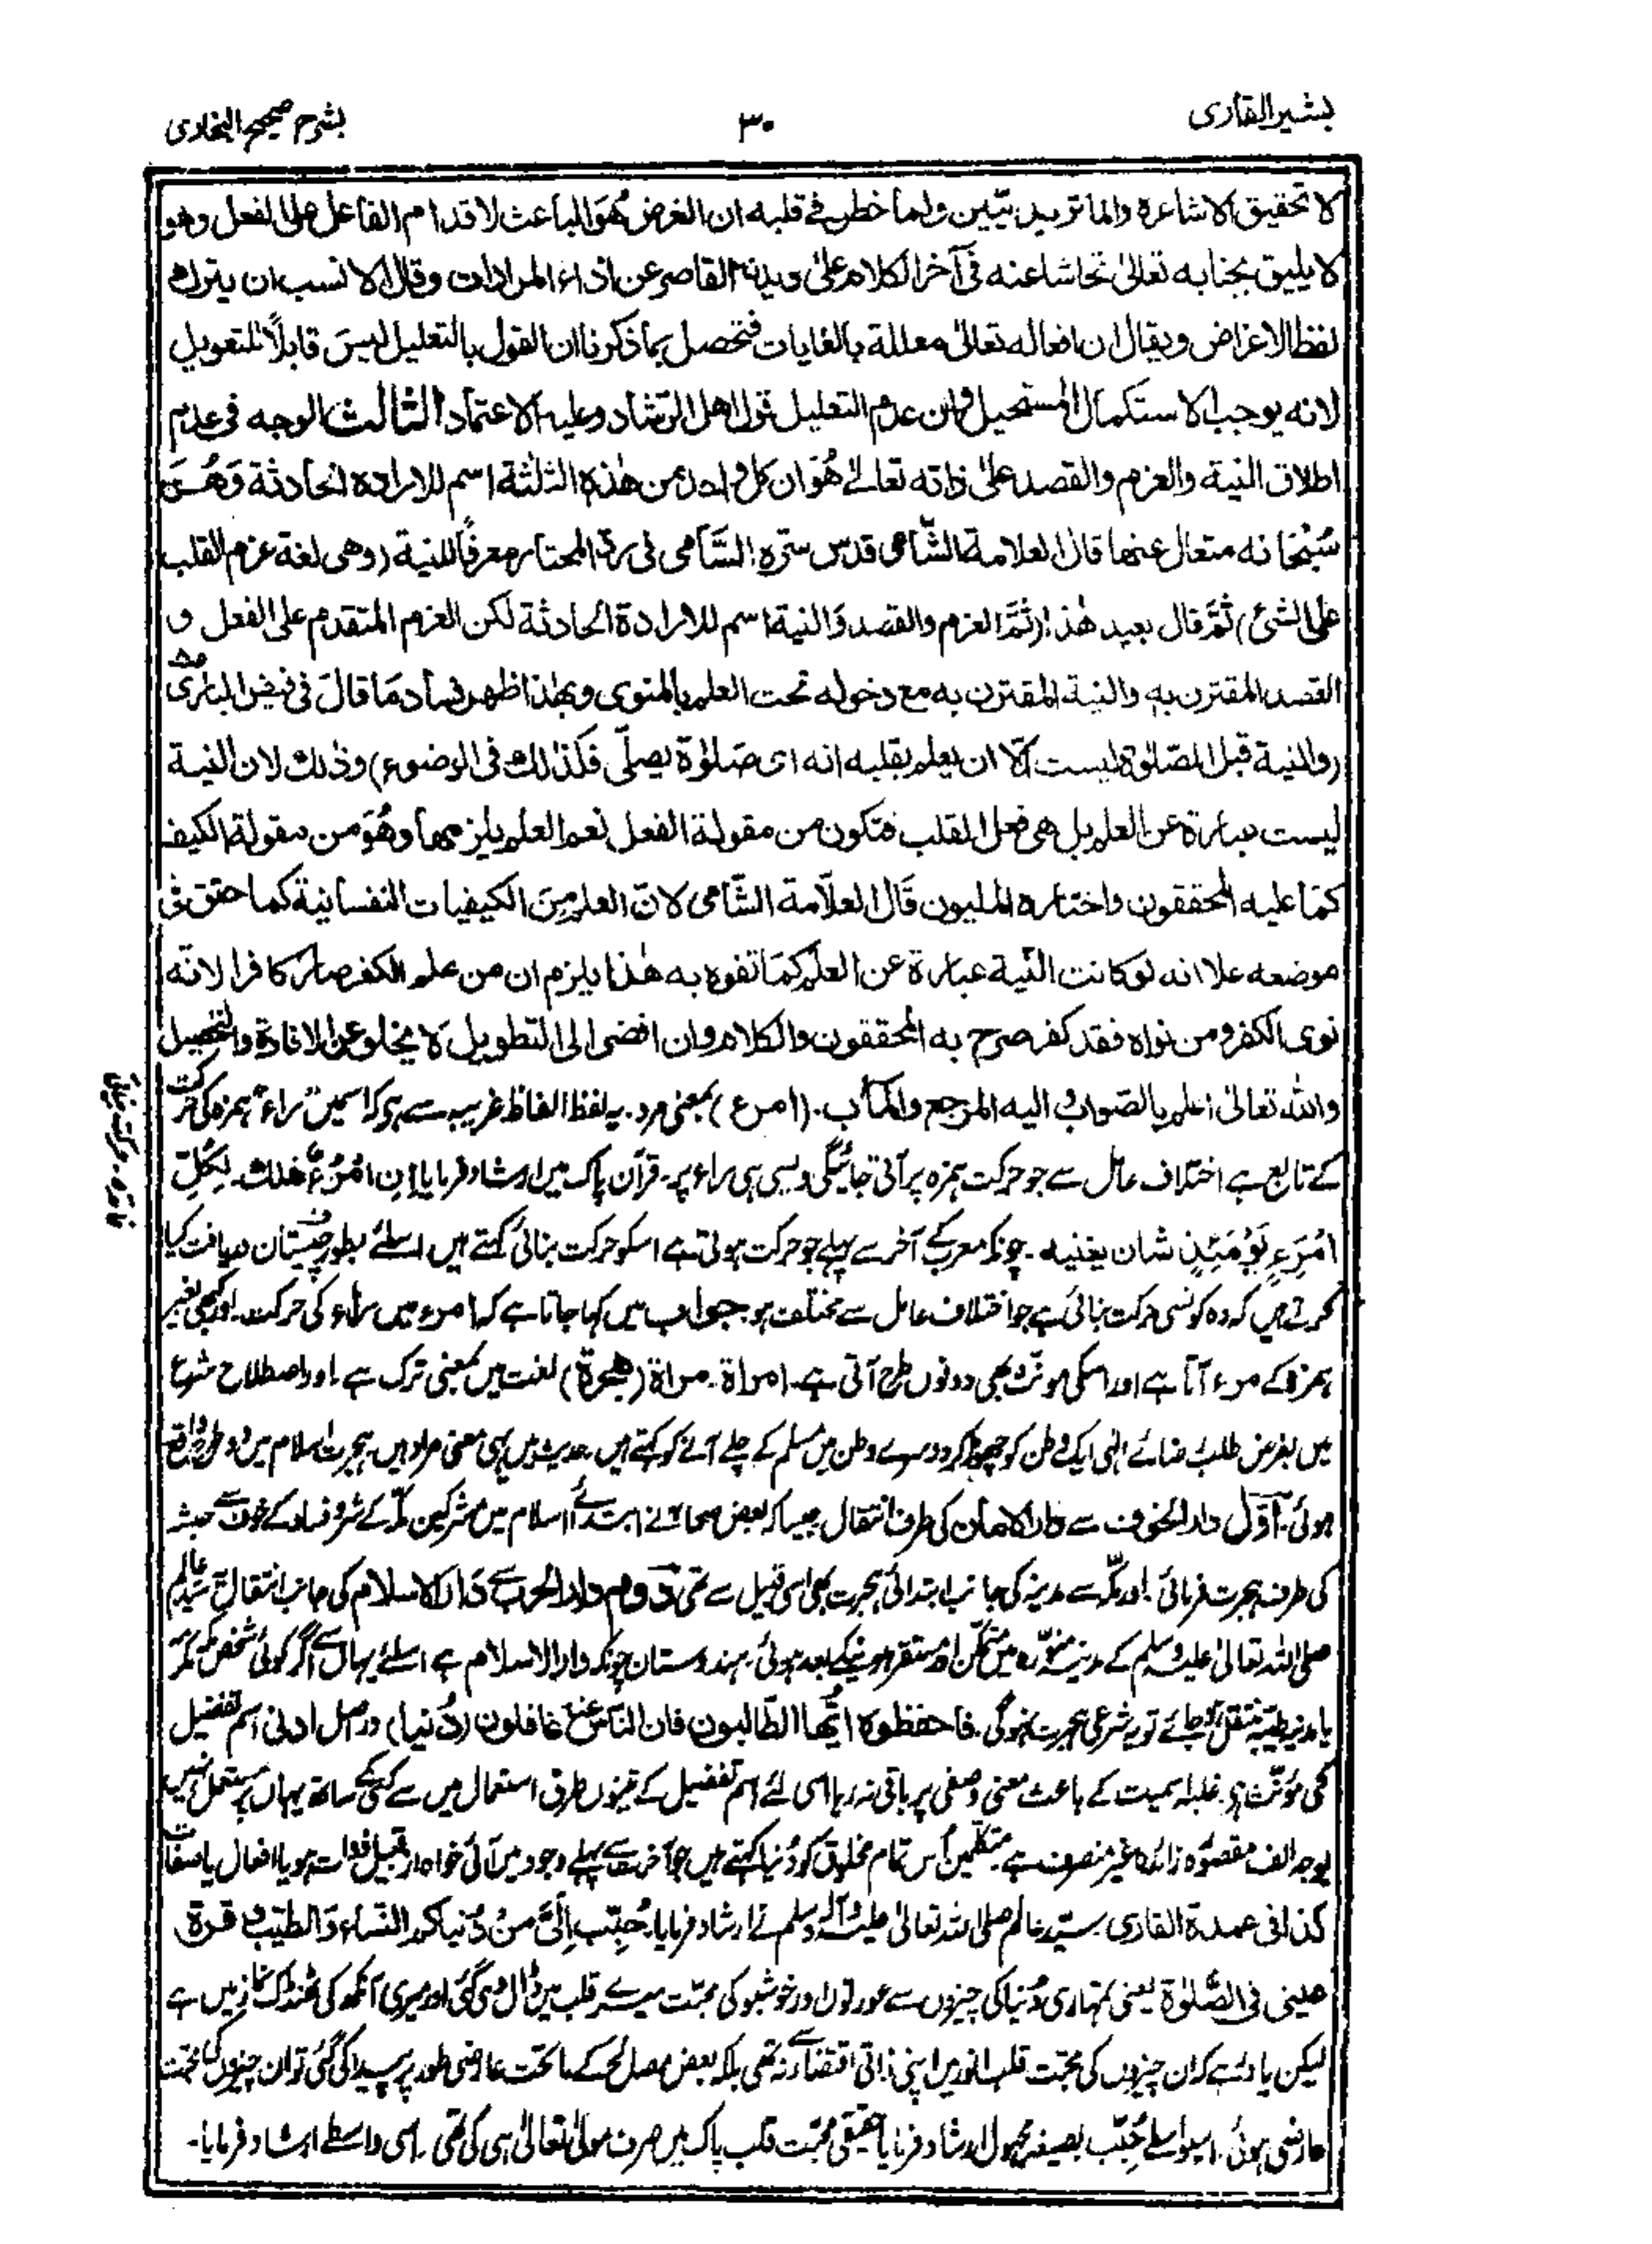 بشیر القاری
۳۰
بشرح صحیح البخاری
لا تحقیق الاشاعرة والماتریدیین ولما خطر فی قلبه ان الغرض هُوَ الباعث لاقدام الفاعل علی الفعل وهو
لا یلیق بجنابه تعالیٰ تحاشا عنه فی آخر الکلام علیٰ القاصر عن اداء المرادات وقال الانسب ان یترك
لفظ الاغراض ویقال ان افعاله تعالیٰ معللة بالغایات فتحصل بما ذکرنا ان القول بالتعلیل لیسَ قابلاً للتعویل
لانه یوجب الاستکمال المستحیل وان عدم التعلیل قول اهل الرشاد وعلیه الاعتماد الثالث الوجه فی عدم
اطلاق النیة والعزم والقصد علیٰ ذاته تعالےٰ هُوَ ان کل واحد من هٰذه الثلٰثة اسم للارادة الحادثة وَهُوَ
سُبْحَانه متعال عنها قال العلامة الشّامی قدس سرّه السَّامی فی ردّ المحتار معرفاً للنیة (وهی لغة عزم القلب
علی الشئ) ثُمَّ قال بعید هٰذا (ثُمَّ العزم والقصد وَالنیة اسم للارادة الحادثة لکن العزم المتقدم علی الفعل و
القصد المقترن به والنیة المقترن به مع دخوله تحت العلم بالمنوی وبهٰذا ظهر فساد مَا قالَ فی فیض الباری
(والنیة قبل الصّلوٰة لیست اِلّا ان یعلم بقلبه انه ای صَلوٰة یصلّی فَکَذٰلك فی الوضوء) وذٰلك لان النیة
لیست عبارة عن العلم بل هی فعل القلب فتکون من مقولة الفعل نعم العلم یلزمها وهُوَ من مقولة الکیف
کمَا علیه المحققون واختاره الملیون قَالَ العلاّمة الشّامی لانّ العلم مِنَ الکیفیات النفسانیة کما حقق فی
موضعه علا انه لو کانت النّیة عبارة عن العلم کمَا تفوه به هٰذا یلزم ان من علم الکفر صار کافرا لانّه
نوی الکفر ومن نواه فقد کفر صرح به المحققون والکلام وان افضی الی التطویل لا یخلو عن الافادة والتحصیل
واللہ تعالیٰ اعلم بالصّواب والیه المرجع والمآب۔ (امرء) بمعنی مرد۔ یہ لفظ الفاظ غریبہ سے ہے کہ اسمیں "راء" ہمزہ کی حرکت
کے تابع ہے اختلاف عامل سے جو حرکت ہمزہ پر آتی جائیگی ویسی ہی راء پر۔ قرآن پاک میں ارشاد فرمایا اِنِ امْرُءٌ هَلَكَ۔ لِکُلِّ
امْرِءٍ یَوْمَئِذٍ شان یغنیه۔ چونکہ معرب کے آخر سے پہلے جو حرکت ہوتی ہے اسکو حرکت بنائی کہتے ہیں اسلئے بطور چیستان دریافت کیا
کرتے ہیں کہ وہ کونسی حرکت بنائی ہے جو اختلاف عامل سے مختلف ہو جواب میں کہا جاتا ہے کہ امرء میں راء کی حرکت۔ اور کبھی بغیر
ہمزہ کے مرء آتا ہے اور اسکی مونّث بھی دونوں طرح آتی ہے۔ امراة۔ مراة (هجرة) لغت میں بمعنی ترک ہے۔ اور اصطلاح شرع
میں بغرض طلب رضائے الٰہی ایک وطن کو چھوڑ کر دوسرے وطن میں مسلم کے چلے آنے کو کہتے ہیں۔ حدیث میں یہی معنی مراد ہیں۔ ہجرت اسلام میں دو طور پر واقع
ہوئی۔ اَوّل دار الخوف سے دار الامان کی طرف انتقال جیسا کہ بعض صحابہ نے ابتدائے اسلام میں مشرکین مکّہ کے شر و فساد کے خوف سے حبشہ
کی طرف ہجرت فرمائی۔ اور مکّہ سے مدینہ کی جانب ابتدائی ہجرت بھی اسی قبیل سے تھی دوم دار الحرب سے دَار الاسلام کی جانب انتقال سیّد عالم
صلی اللہ تعالیٰ علیہ وسلم کے مدینہ منوّرہ میں متمکّن اور مستقر ہونیکے بعد ہوئی۔ ہندوستان چونکہ دار الاسلام ہے اسلئے یہاں سے اگر کوئی شخص مکّہ مکرّمہ
یا مدینہ طیّبہ منتقل ہو جائے تو یہ شرعی ہجرت نہوگی۔ فاحفظوہ ایّها الطّالبون فان النّاس عنه غافلون (دُنیا) دراصل ادنیٰ اسم تفضیل
کی مؤنّث ہے۔ غلبۂ اسمیت کے باعث معنی وصفی پر باقی نہ رہا اسی لئے اسم تفضیل کے تینوں طرق استعمال میں سے کسی کے ساتھ یہاں پر مستعمل نہیں
بوجہ الف مقصورہ زائدہ غیر منصرف ہے۔ متکلّمین اُس تمام مخلوق کو دُنیا کہتے ہیں جو آخرت سے پہلے وجود میں آئی خواہ از قبیل ذوات ہو یا افعال یا صفات
کذا فی عمدة القاری۔ سیّد عالم صلی اللہ تعالیٰ علیہ وآلہ وسلم نے ارشاد فرمایا۔ حُبِّبَ اِلَیَّ مِنْ دُنیاکم النّساء وَالطیّب و قرة
عینی فی الصَّلوٰة یعنی تمہاری دُنیا کی چیزوں سے عورتوں اور خوشبو کی محبّت میرے قلب میں ڈال دی گئی اور میری آنکھ کی ٹھنڈک نماز میں ہے
لیکن یاد رہے کہ ان چیزوں کی محبّت قلب انور میں اپنی ذاتی اقتضاء سے نہ تھی بلکہ بعض مصالح کے ماتحت عارضی طور پر پیدا کی گئی تو ان چیزوں کی محبّت
عارضی ہوئی۔ اسیواسطے حُبِّبَ بصیغہ مجہول ارشاد فرمایا حقیقی محبّت قلب پاک میں صرف مولیٰ تعالیٰ ہی کی تھی۔ اسی واسطے ارشاد فرمایا۔